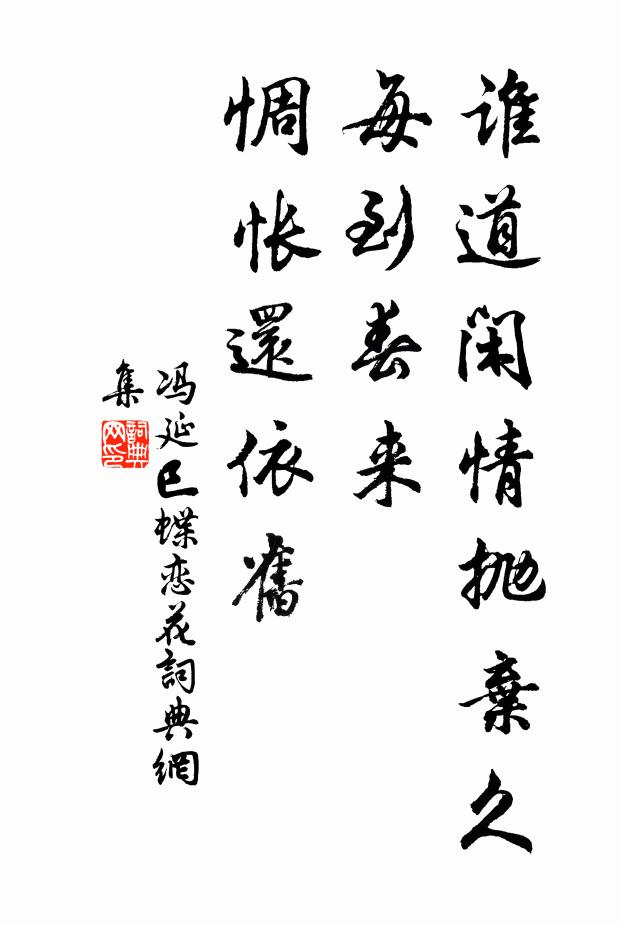 谁道闲情抛棄久
每到春来
惆怅還依舊
冯延巳蝶恋花詞典網
集
詞典
网印